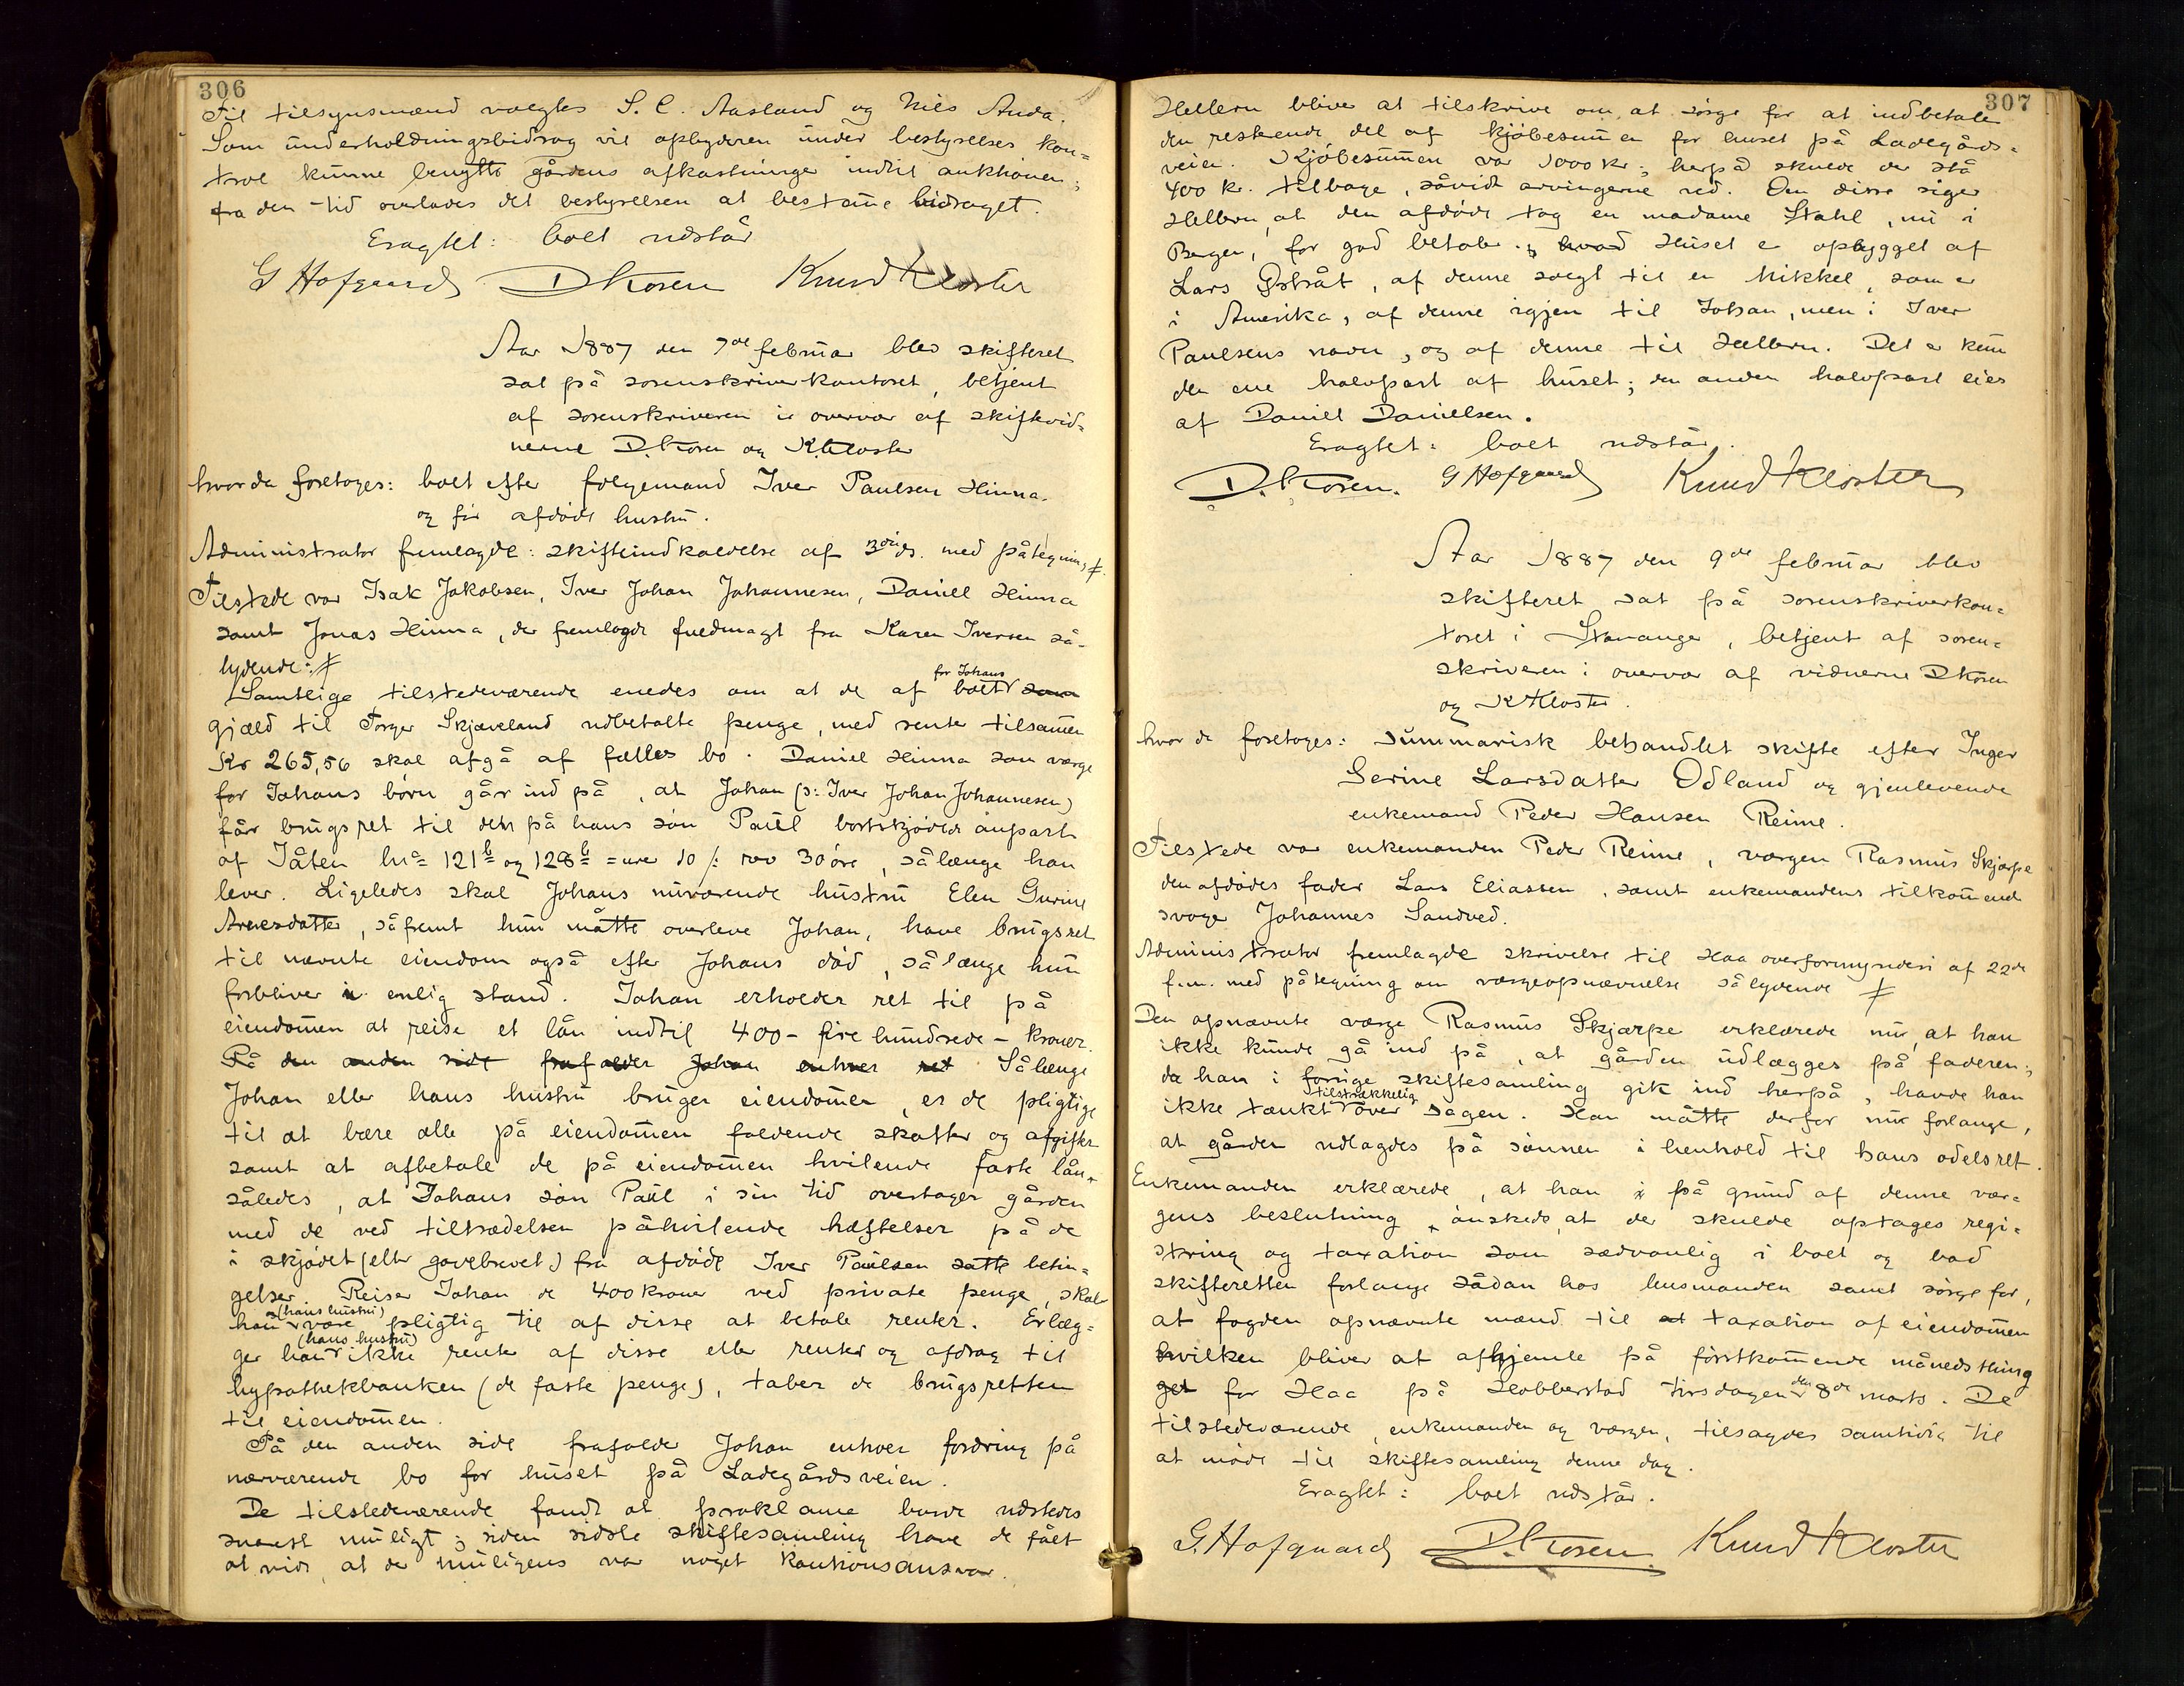 306
Til tilsynsmænd valgtes S. C. Aasland og Nils Anda.
Som underholdningsbidrag vil opbyderen under bestyrelses kon=
trol kunne benytte gårdens afkastninge indtil auktionen;
fra den tid overlades det bestyrelsen at bestame bidraget.
Eragtet: boet udstår
G Hofgaard D. Kosen Knud Kloster
Aar 1887 den 7de februar blev skifteret
sat på sorenskriverkontoret, betjent
af sorenskriveren i overvær af skiftevid=
nerne D. Kosen og K. Kloster
hvor da foretoges: boet efter følgemand Iver Paulsen Hinna
og før afdøde hustru.
Administrator fremlagde: skifteindkaldelse af 3die ds. med påtegning #
Tilstede var Isak Jakobsen, Iver Johan Johannesen, Daniel Hinna
samt Jonas Hinna, der fremlagde fuldmagt fra Karen Iversen så=
lydende: #
Samtlige tilstedeværende enedes om at de af boet for Johans som
gjæld til Torger Skjæveland udbetalte penge, med renter tilsamen
Kr 265,56 skal afgå af fælles bo. Daniel Hinna som værge
for Johans børn går ind på, at Johan (ɔ: Iver Johan Johannesen)
får brugsret til den på hans søn Paul bortskjødede anpart
af Jåten bno 121b og 128b = 10 30 øre, sålænge han
lever. Ligeledes skal Johans nuværende hustru Elen Gurine
Arnesdatter, såfremt hun måtte overleve Johan, have brugsret
til nævnte eiendom også efter Johans død, sålænge hun
forbliver i enlig stand. Johan erholder ret til på
eiendommen at reise et lån indtil 400 - fire hundrede - kroner.
På den anden side frafalder Johan enhver ret Sålænge
Johan eller hans hustru bruger eiendommen, er de pligtige
til at bære alle på eiendommen faldende skatter og afgifter
samt at afbetale de på eiendommen hvilende faste lån,
således, at Johans søn Paul i sin tid overtager gården
med de ved tiltrædelsen påhvilende hæftelser på de
i skjødet (eller gavebrevet) fra afdøde Iver Paulsen satte betin=
gelser. Reiser Johan de 400 kroner ved private penge, skal
han (hans hustru) være pligtig til af disse at betale renter. Erlæg=
ger han (hans hustru) ikke renter af disse eller renter og afdrag til
hypothekbanken (de faste penge), taber de brugsretten
til eiendommen.
På den anden side frafalder Johan enhver fordring på
nærværende bo for huset på Ladegårdsveien.
De tilstedeværende fandt at proklama burde udstedes
snarest muligt; siden sidste skiftesamling have de fået
at vide, at der muligens var noget kautionsansvar.
307
Hellern bliver at tilskrive om at sørge for at indbetale
den resterende del af kjøbesummen for huset på Ladegårds=
veien. Kjøbesummen var 1000 kr; herpå skulde der stå
400 kr. tilbage, såvidt arvingerne ved. Om disse siger
Hellern, at den afdøde tog en madame Stahl, nu i
Bergen, for god betaler. hvad Huset er opbygget af
Lars Østråt, af denne solgt til en Mikkel, som er
i Amerika, af denne igjen til Johan, men i Iver
Paulsens navn, og af denne til Hellern. Det er kun
den ene halvpart af huset; den anden halvpart eies
af Daniel Danielsen.
Eragtet: boet udstår.
D. Kosen. G Hofgaard Knud Kloster
Aar 1887 den 9de februar blev
skifteret sat på sorenskriverkon=
toret i Stavanger, betjent af soren=
skriveren i overvær af vidnerne D Kosen
og K Kloster.
hvor da foretoges: summarisk behandlet skifte efter Inger
Serine Larsdatter Ødland og gjenlevende
enkemand Peder Hansen Reime.
Tilstede var enkemanden Peder Reime, værgen Rasmus Skjærpe
den afdødes fader Lars Eliassen, samt enkemandens tilkommende
svoger Johannes Sandved.
Administrator fremlagde skrivelse til Haa overformynderi af 22de
f.m. med påtegning om værgeopnævnelse sålydende #
Den opnævnte værge Rasmus Skjærpe erklærede nu, at han
ikke kunde gå ind på, at gården udlægges på faderen;
da han i forrige skiftesamling gik ind herpå, havde han
ikke tænkt tilstrækkelig over sagen. Han måtte derfor nu forlange,
at gården udlagdes på sønnen i henhold til hans odelsret.
Enkemanden erklærede, at han på grund af denne vær=
gens beslutning ønskede, at der skulde optages regi=
strering og taxation som sædvanlig i boet og bad
skifteretten forlange sådan hos lensmanden samt sørge for,
at fogden opnævnte mænd til at taxation af eiendommen
hvilken bliver at afhjemle på førstkommende månedsthing
get for Haa på Hobberstad tirsdagen den 8de marts. De
tilstedeværende, enkemanden og værgen, tilsagdes samtidig til
at møde til skiftesamling denne dag.
Eragtet: boet udstår.
G. Hofgaard D. Kosen Knud Kloster